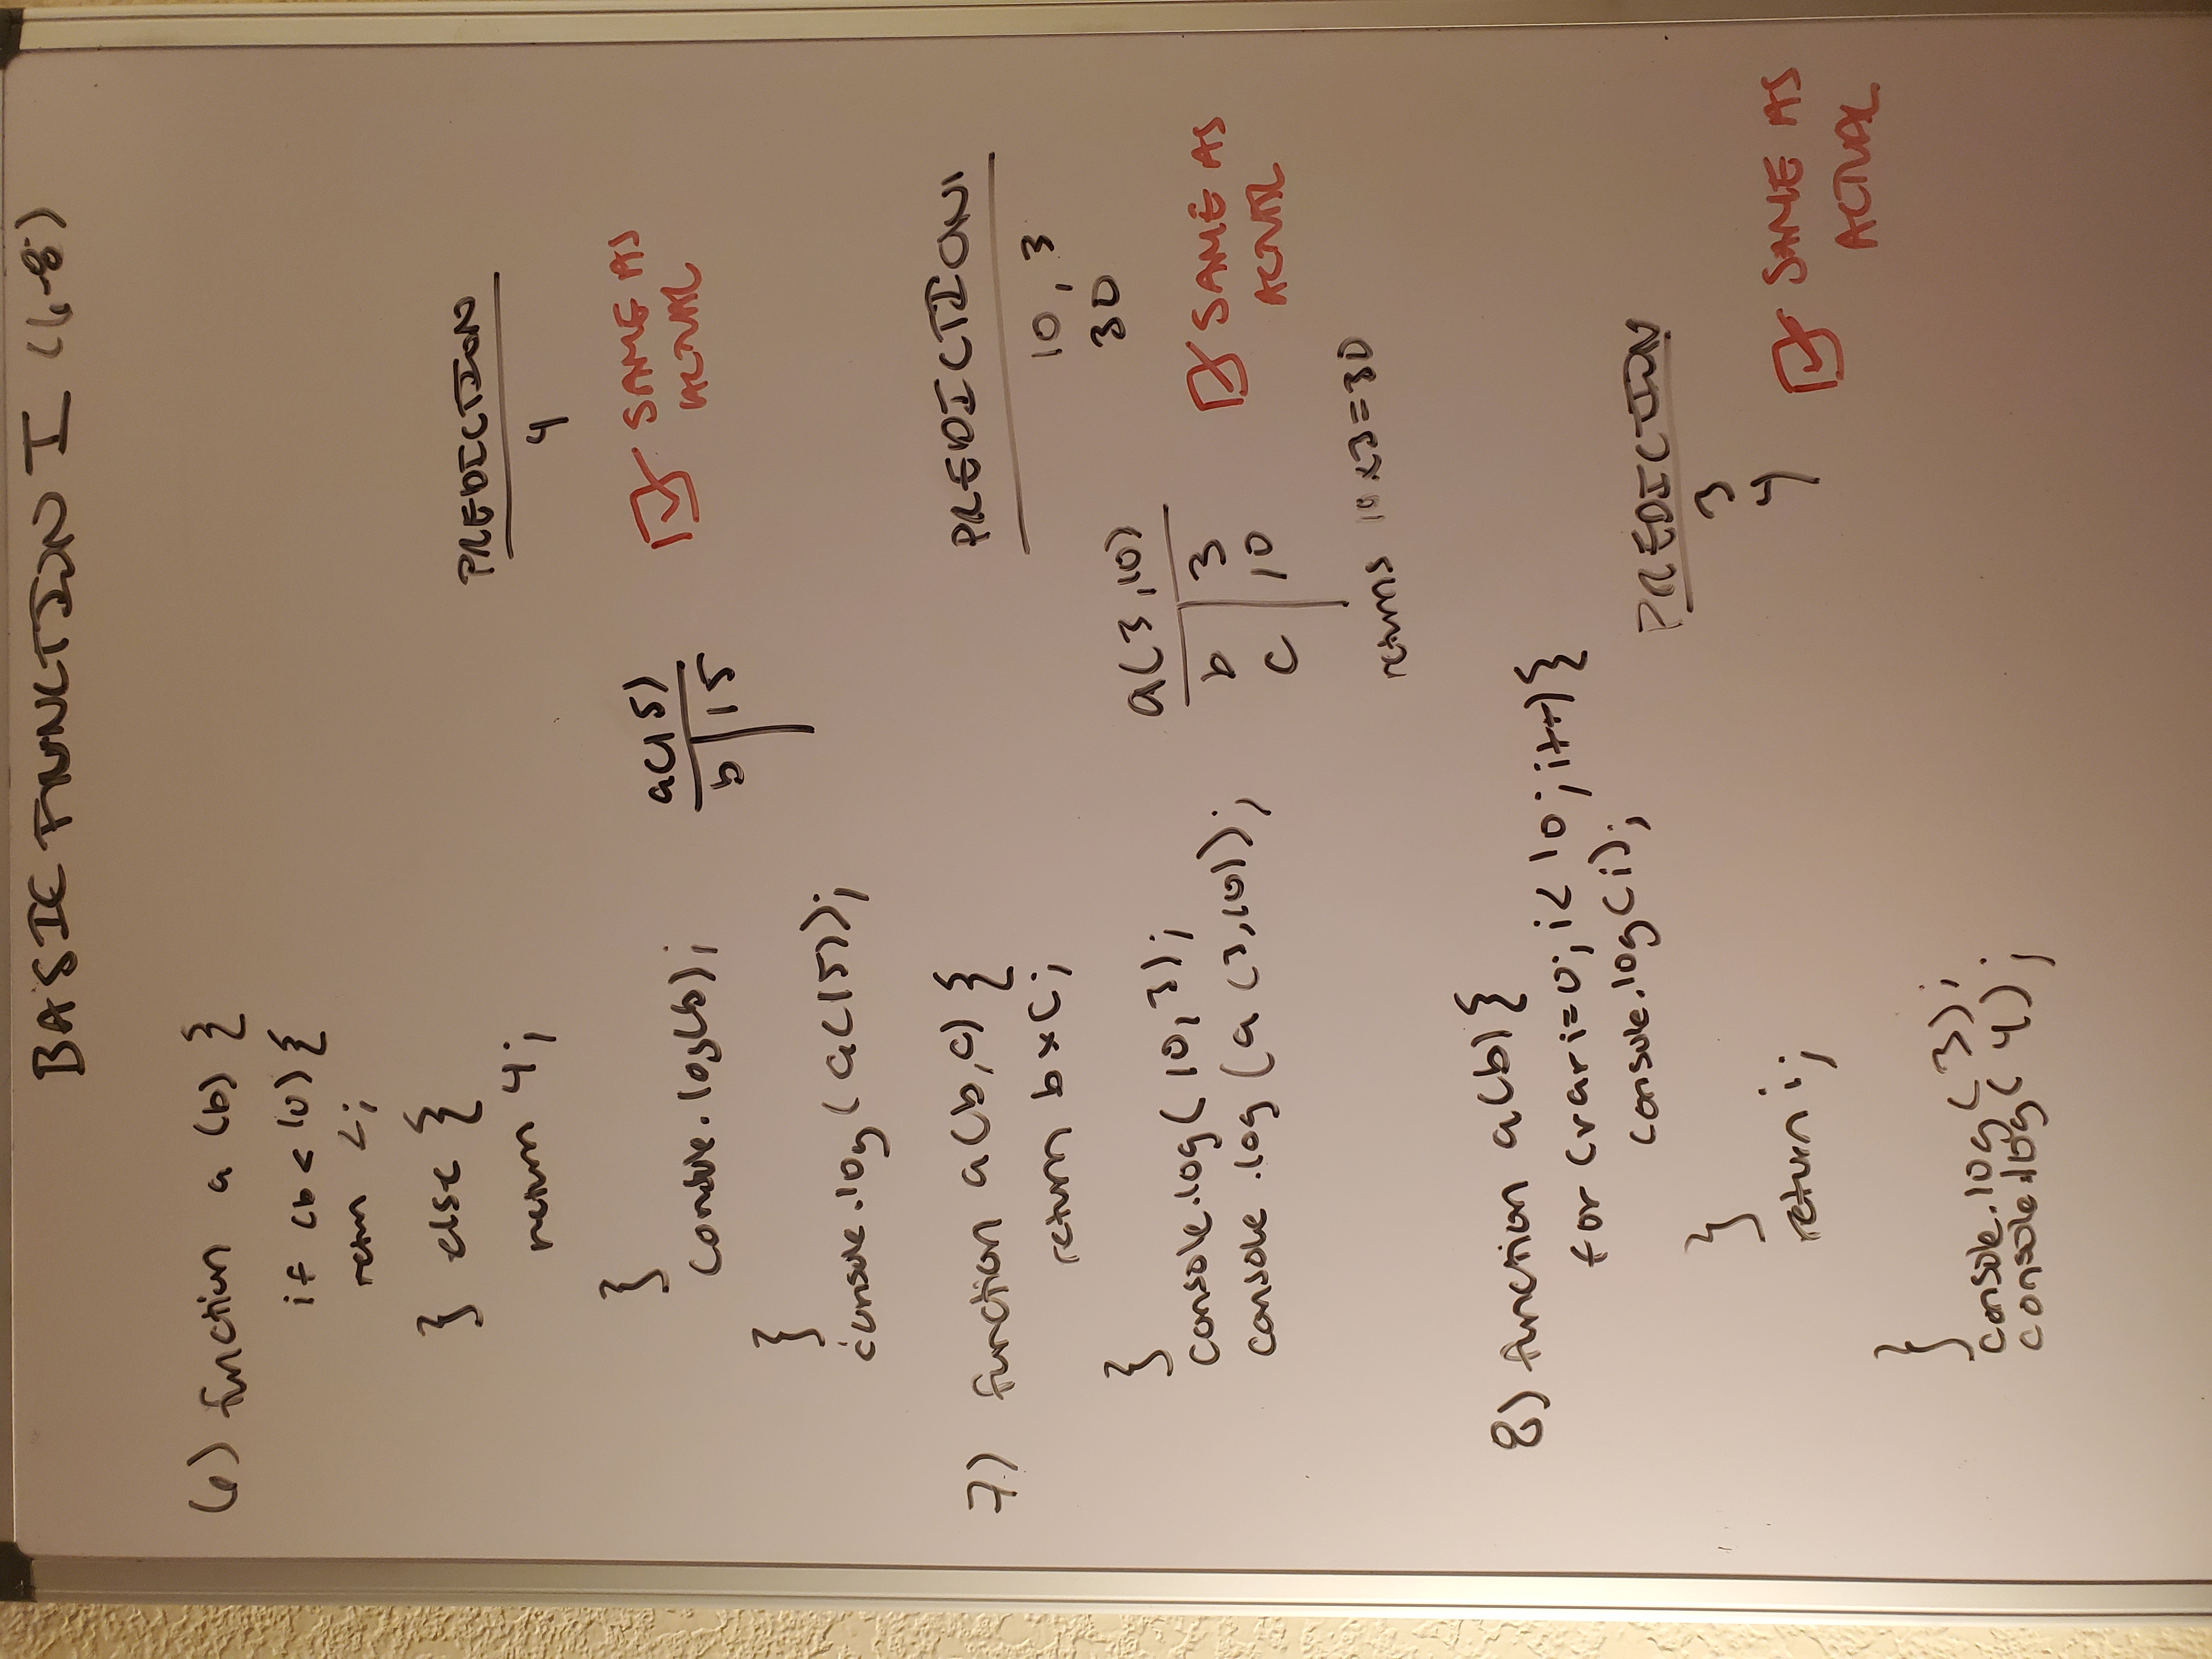 BASIC FUNCTION I (6-8)
(6) function a (b) {
if (b < 10) {
return 2;
} else {
return 4;
}
console.log(b);
}
console.log(a(15));
a(15)
b | 15
PREDICTION
4
SAME AS
ACTUAL
7) function a(b,c) {
return b x c;
}
console.log(10,3);
console.log(a(3,10));
a(3,10)
b | 3
c | 10
returns 10 x 3 = 30
PREDICTION
10, 3
30
SAME AS
ACTUAL
8) function a(b) {
for (var i=0; i< 10; i++) {
console.log(i);
}
return i;
}
console.log(3);
console.log(4);
PREDICTION
3
4
SAME AS
ACTUAL